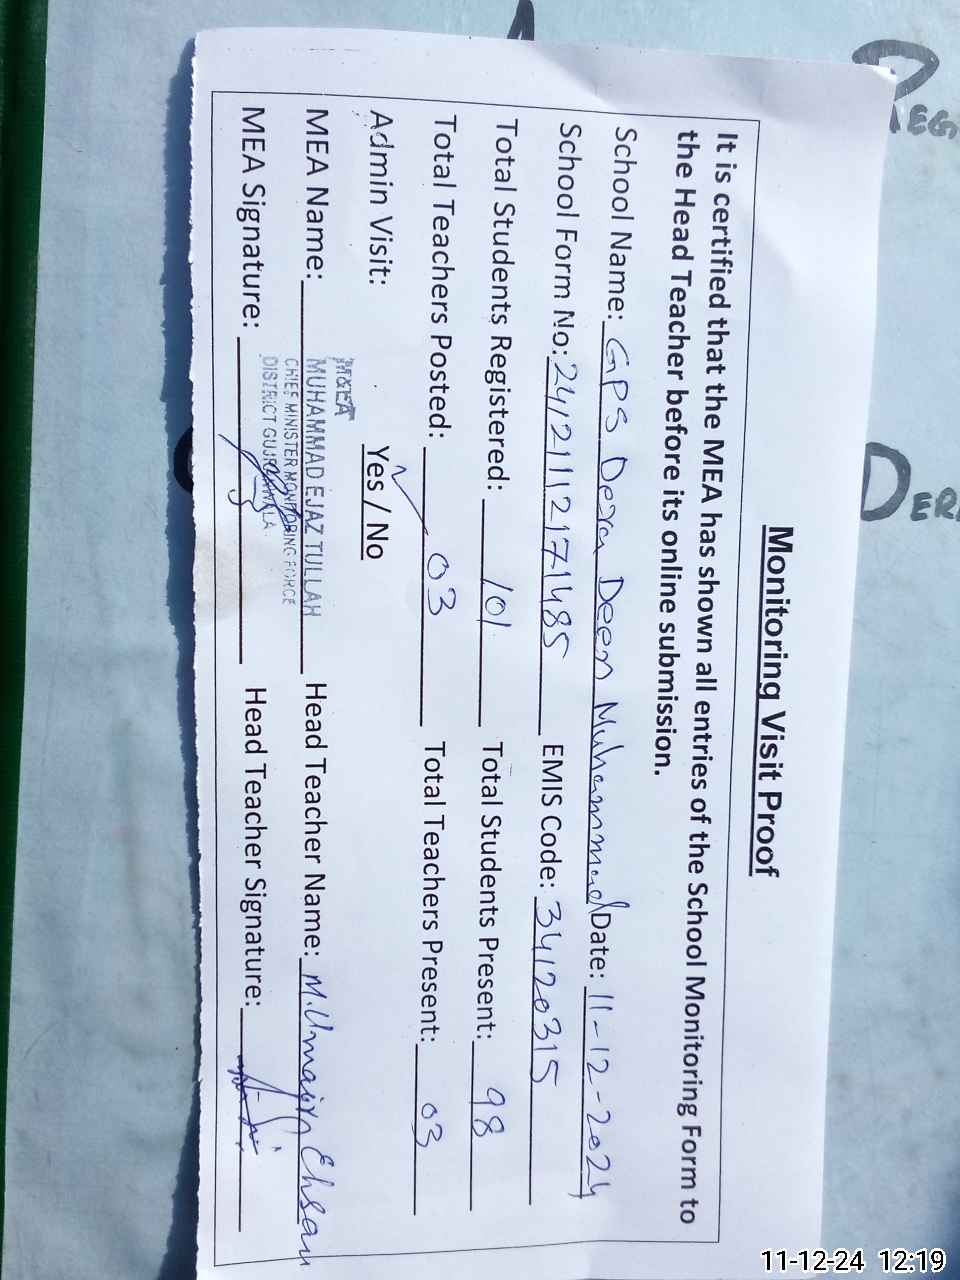 Monitoring Visit Proof
It is certified that the MEA has shown all entries of the School Monitoring Form to
the Head Teacher before its online submission.
School Name: GPS Dera Deen Muhammad Date: 11-12-2024
School Form No: 24121112171485 EMIS Code: 34120315
Total Students Registered: 101 Total Students Present: 98
Total Teachers Posted: 03 Total Teachers Present: 03
Admin Visit: Yes / No
M&EA
MEA Name: MUHAMMAD EJAZ TULLAH Head Teacher Name: M.Umair Ehsan
CHIEF MINISTER MONITORING FORCE
DISTRICT GUJRANWALA
MEA Signature: Head Teacher Signature:
REG
DER
11-12-24 12:19